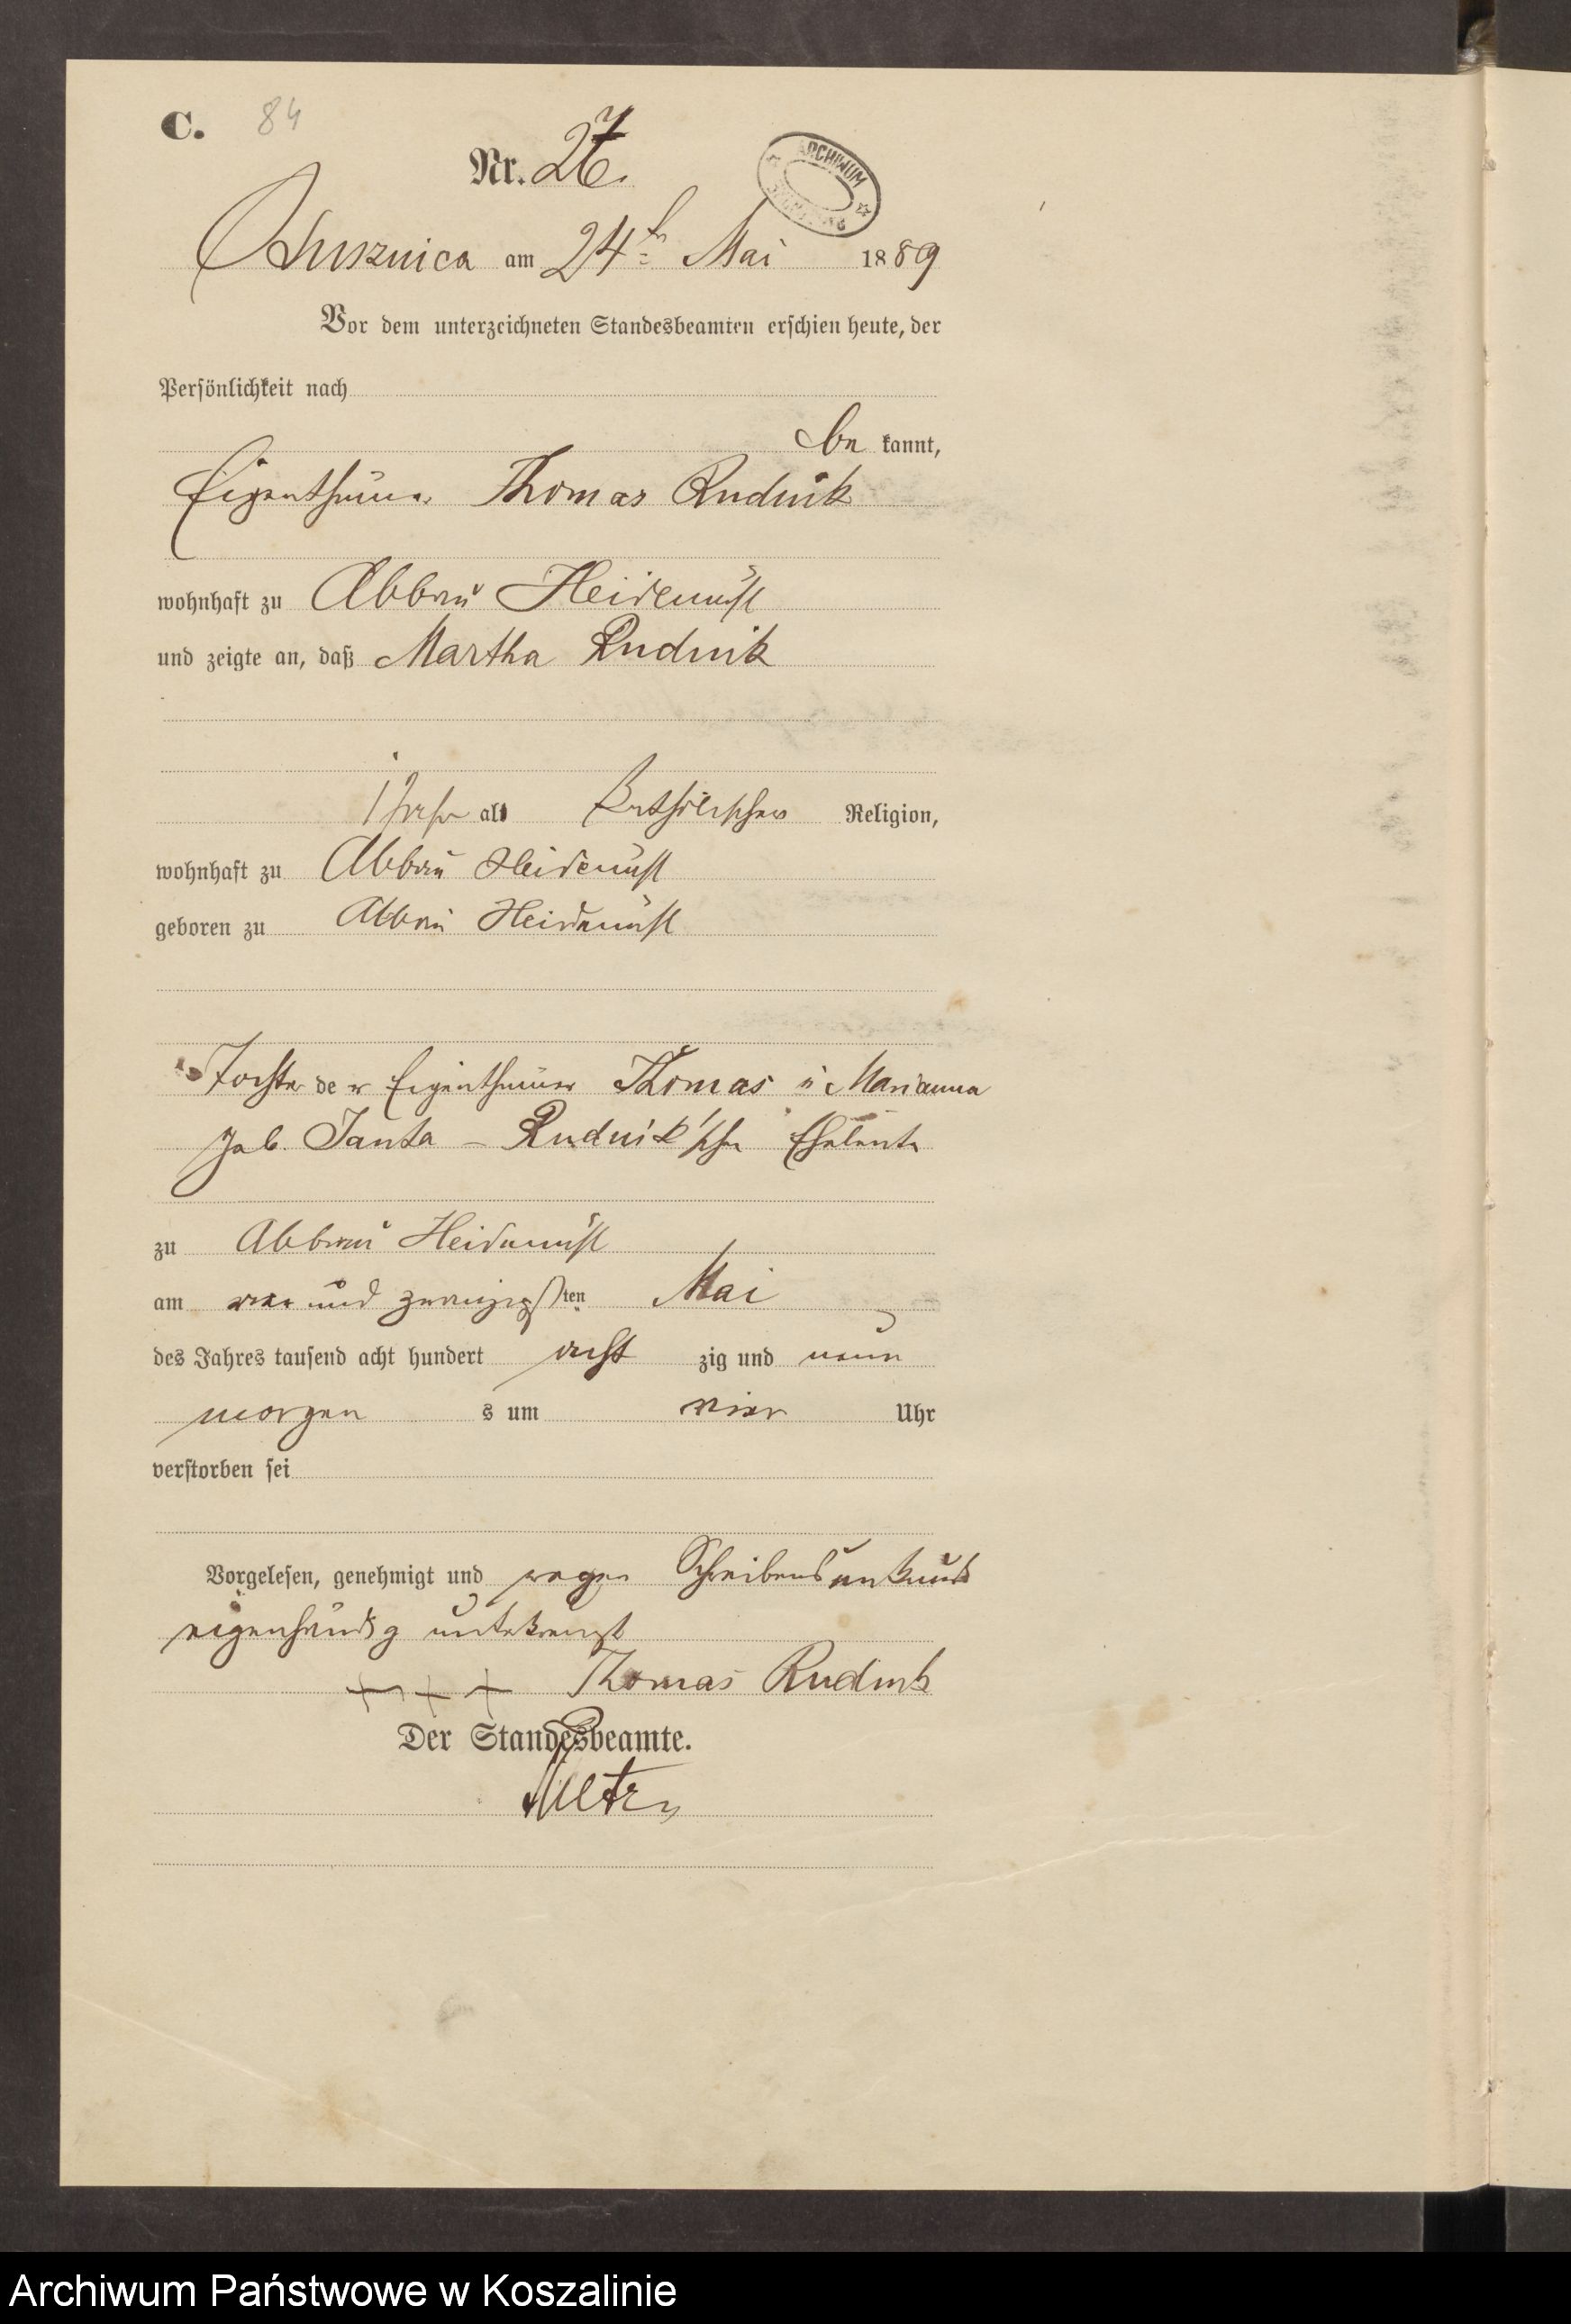 C. 84
Nr. 27.
ARCHIWUM
Oslusznica am 24t Mai 1889
Vor dem unterzeichneten Standesbeamten erschien heute, der
Persönlichkeit nach
be kannt,
Eigenthümer Thomas Rudnik
wohnhaft zu Abbau Heidemühl
und zeigte an, daß Martha Rudnik
1 Jahr alt katholischer Religion,
wohnhaft zu Abbau Heidemühl
geboren zu Abbau Heidemühl
Tochter der Eigenthümer Thomas u Marianna
geb. Janta - Rudnik'schen Eheleute
zu Abbau Heidemühl
am und zwanzigsten Mai
des Jahres tausend acht hundert acht zig und neun
morgen s um vier Uhr
verstorben sei
Vorgelesen, genehmigt und wegen Schreibensunkunde
eigenhändig unterkreuzt
+ + + Thomas Rudnik
Der Standesbeamte.
Archiwum Państwowe w Koszalinie